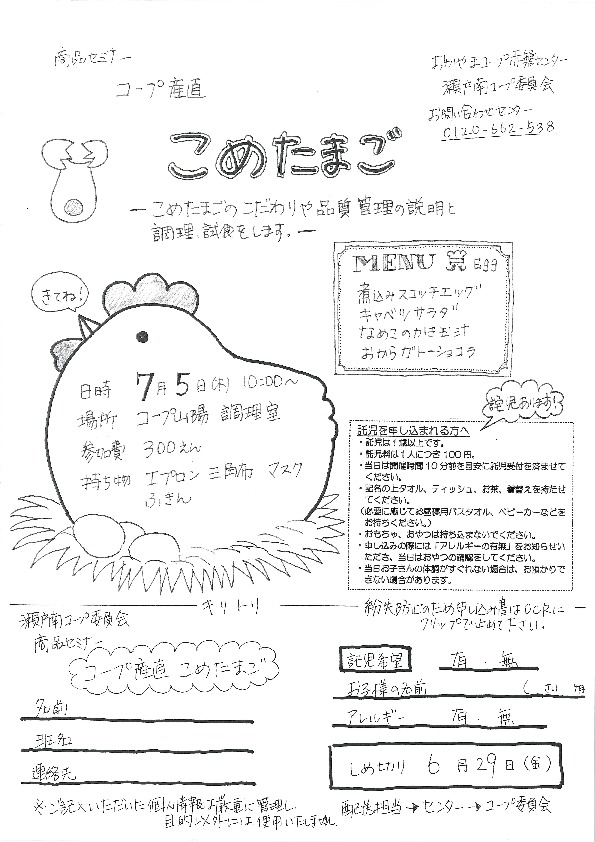 商品セミナー
コープ産直
おかやまコープ赤磐センター
瀬戸南コープ委員会
お問い合わせセンター
0120-662-538
こめたまご
ーこめたまごのこだわりや品質管理の説明と
調理、試食をします。ー
MENU Egg
煮込みスコッチエッグ
キャベツサラダ
なめこのかきたま汁
おからガトーショコラ
きてね！
日時 7月5日(木) 10:00〜
場所 コープ山陽 調理室
参加費 300えん
持ち物 エプロン 三角布 マスク
ふきん
託児あります！
託児を申し込まれる方へ
・託児は1歳以上です。
・託児料は1人につき100円。
・当日は開催時間10分前を目安に託児受付を済ませて
ください。
・記名の上タオル、ティッシュ、お茶、着替えを持たせ
てください。
(必要に応じてお昼寝用バスタオル、ベビーカーなどを
お持ちください。)
・おもちゃ、おやつは持ち込まないでください。
・申し込みの際には「アレルギーの有無」をお知らせい
ただき、当日はおやつの確認をしてください。
・当日お子さんの体調がすぐれない場合は、お預かりで
きない場合があります。
キリトリ
紛失防止のため申し込み書はOCRに
クリップで止めて下さい。
瀬戸南コープ委員会
商品セミナー
コープ産直 こめたまご
名前
班名
連絡先
託児希望 有・無
お子様の名前 ( 才 ヶ月
アレルギー 有・無
しめ切り 6月29日(金)
※ご記入いただいた個人情報は厳重に管理し、
目的以外には使用いたしません。
配達担当→センター→コープ委員会